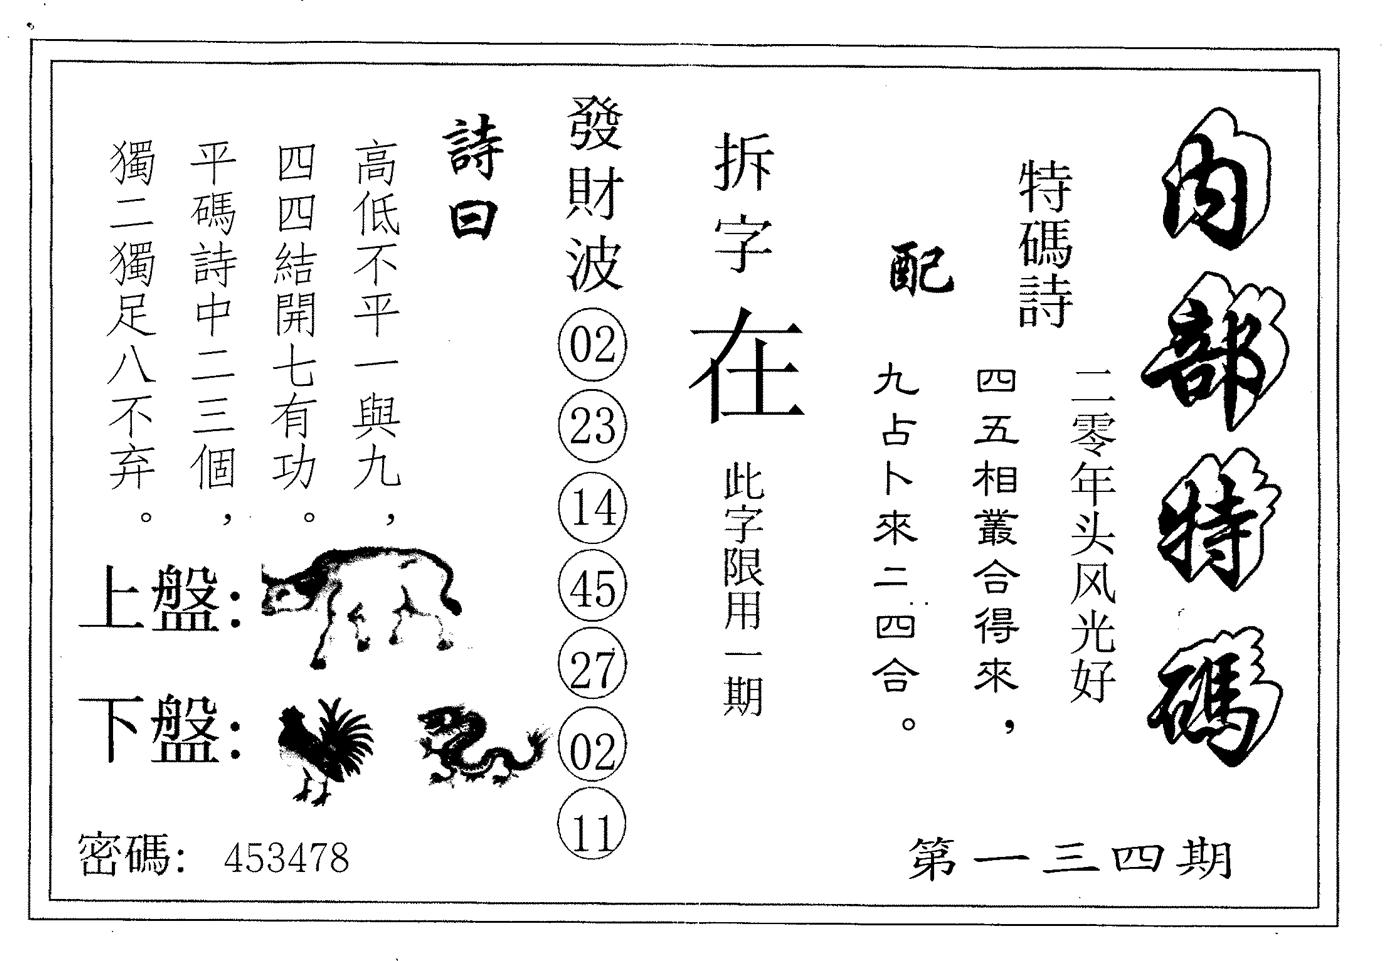 內部特碼
特碼詩
二零年头风光好
四五相叢合得來，
配
九占卜來二四合。
第一三四期
拆字
在
此字限用一期
發財波
02
23
14
45
27
02
11
詩曰
高低不平一與九，
四四結開七有功。
平碼詩中二三個，
獨二獨足八不弃。
上盤：
下盤：
密碼： 453478